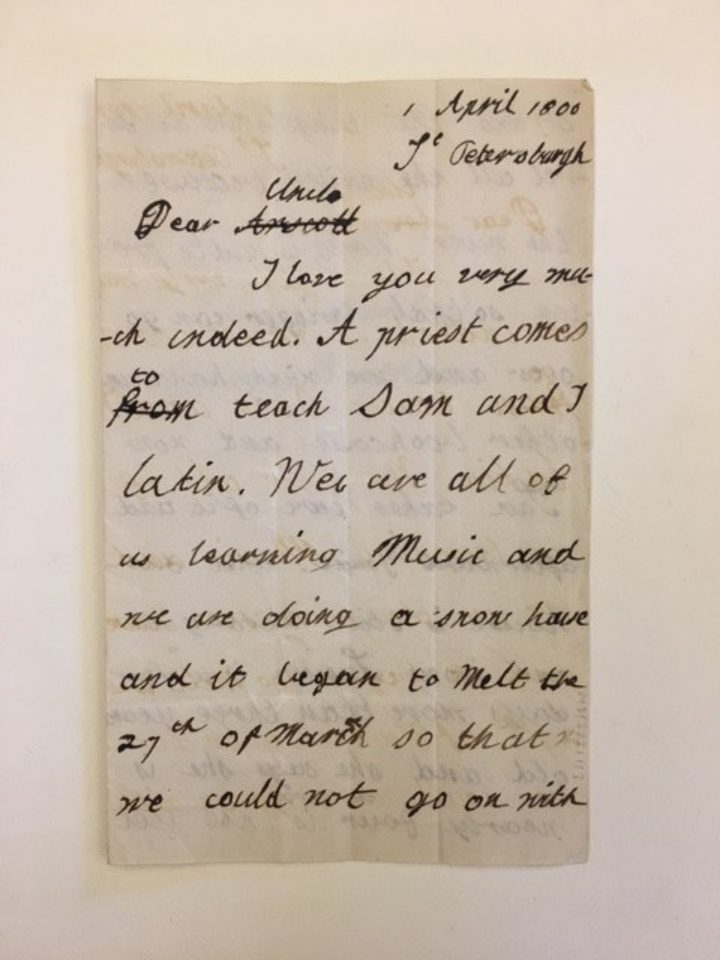 1 April 1800
St Petersburgh
Uncle
Dear Arscott
I love you very mu-
-ch indeed. A priest comes
to
from teach Sam and I
latin. Wee are all of
us learning Music and
we are doing a snow house
and it began to Melt the
27th of March so that
we could not go on with